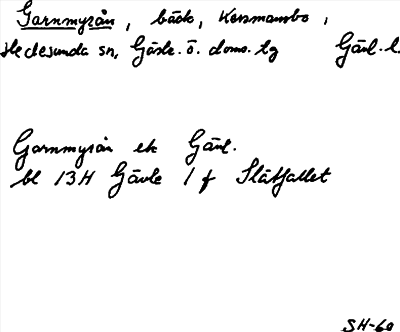 Garnmyrån, bäck, Kersmansbo,
Hedesunda sn, Gästr. ö. doms. lg Gävl. l.
Garnmyrån ek Gävl.
bl 13H Gävle 1 f Slåtfallet
SH-60